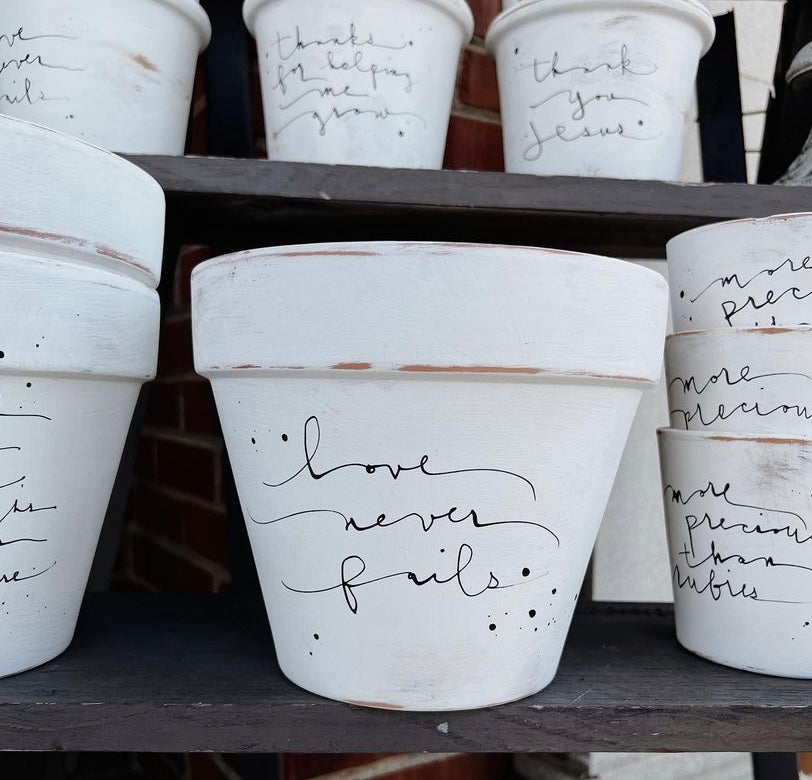 thanks
for helping
me
grow
thank
you
Jesus
love
never
fails
more
more
precious
more
precious
than
rubies